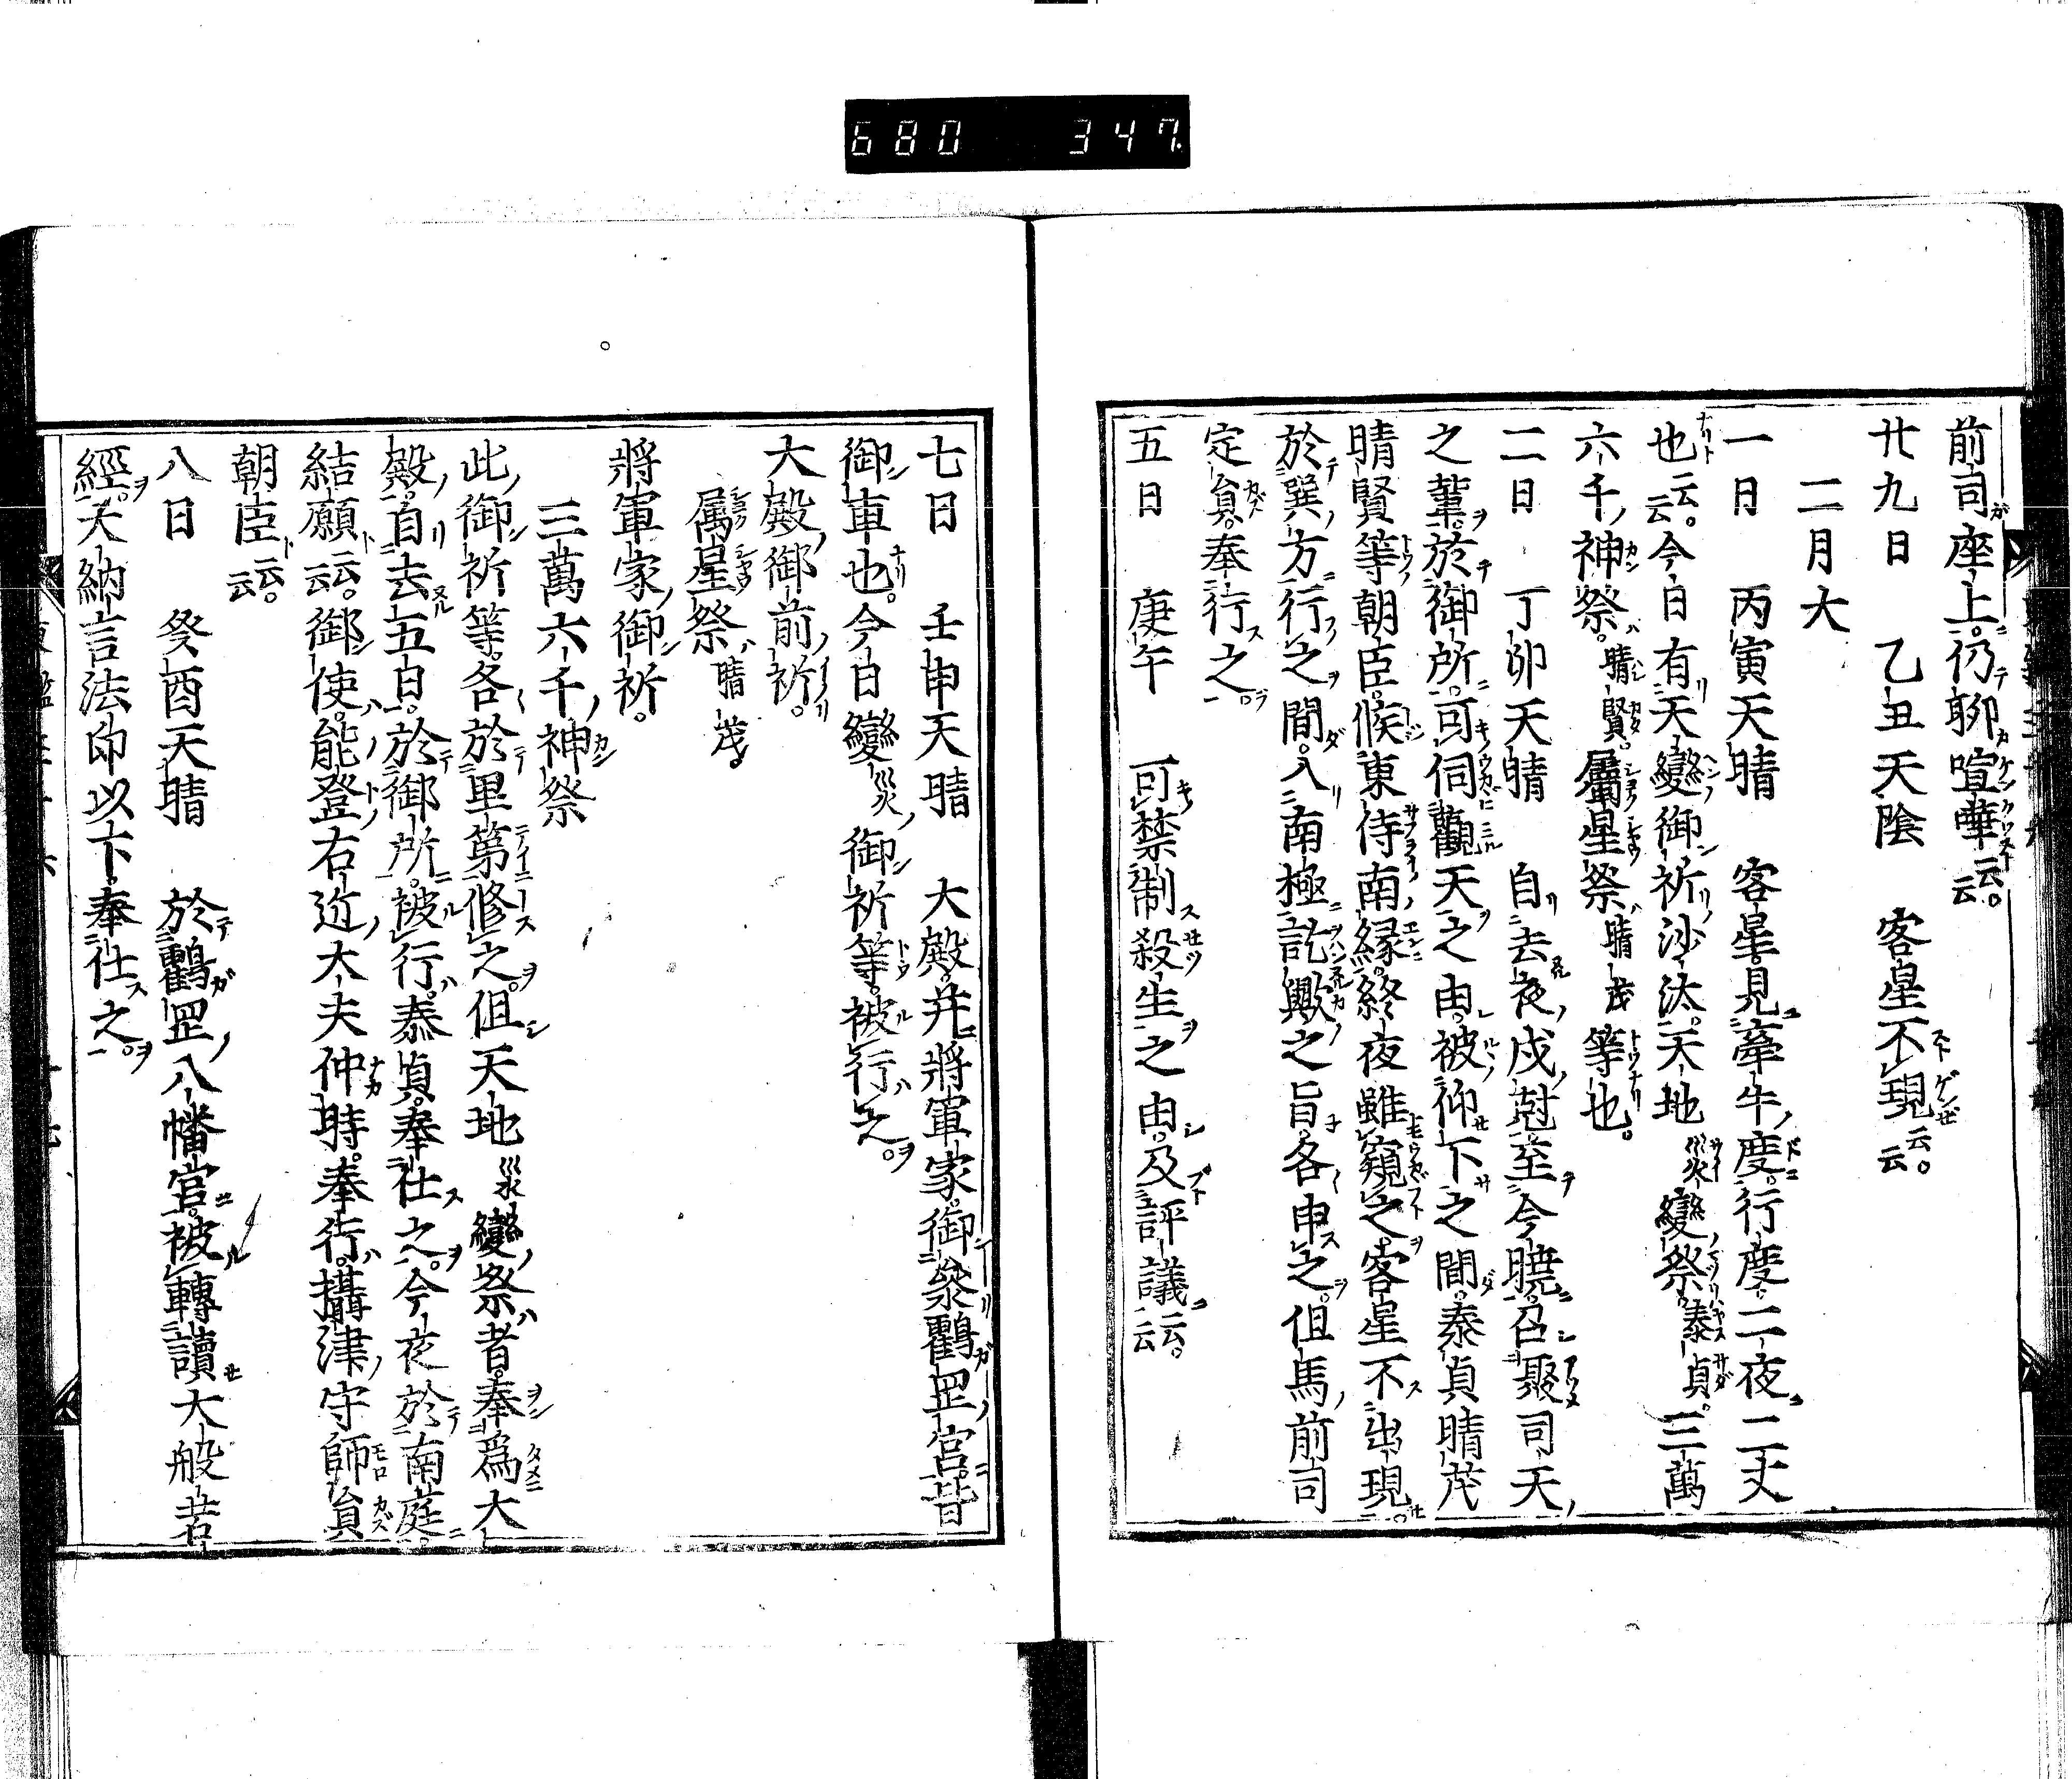 680 347
前司座上仍聊喧嘩云云
廿九日 乙丑天陰 客星不現云云
二月大
一日 丙寅天晴 客星見牽牛度行度二夜二丈
也云云今日有天變御祈沙汰天地災變祭泰貞三萬
六千神祭晴賢屬星祭晴茂等也
二日 丁卯天晴 自去夜戍尅至今曉召聚司天
之輩於御所可伺觀天之由被仰下之間泰貞晴茂
晴賢等朝臣候東侍南縁終夜雖窺之客星不出現
於巽方行之間入南極訖歟之旨各申之但馬前司
定員奉行之
五日 庚午 可禁制殺生之由及評議云云
七日 壬申天晴 大殿并將軍家御參鸖罡宮皆
御車也今日變災御祈等被行之
大殿御前祈
屬星祭晴茂
將軍家御祈
三萬六千神祭
此御祈等各於里第修之但天地災變祭者奉爲大
殿自去五日於御所被行泰貞奉仕之今夜於南庭
結願云云御使能登右近大夫仲時奉行攝津守師員
朝臣云云
八日 癸酉天晴 於鸖罡八幡宮被轉讀大般若
經大納言法印以下奉仕之